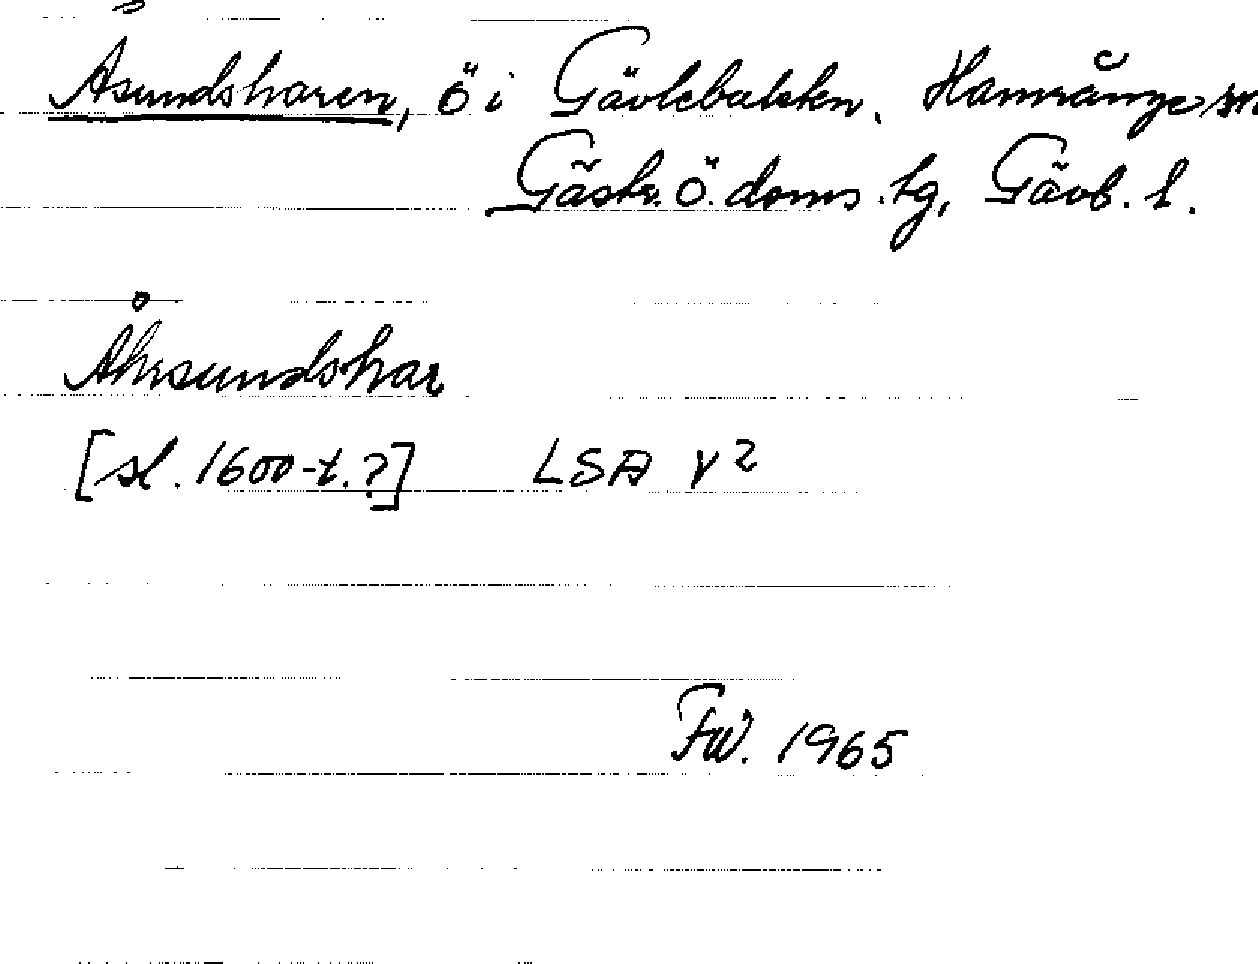 Åsundsharen, ö i Gävlebukten, Hamrånge sn
Gästr. ö. doms. tg, Gävb. l.
Åhrsundshar
[sl. 1600-t.?] LSA V²
FW. 1965